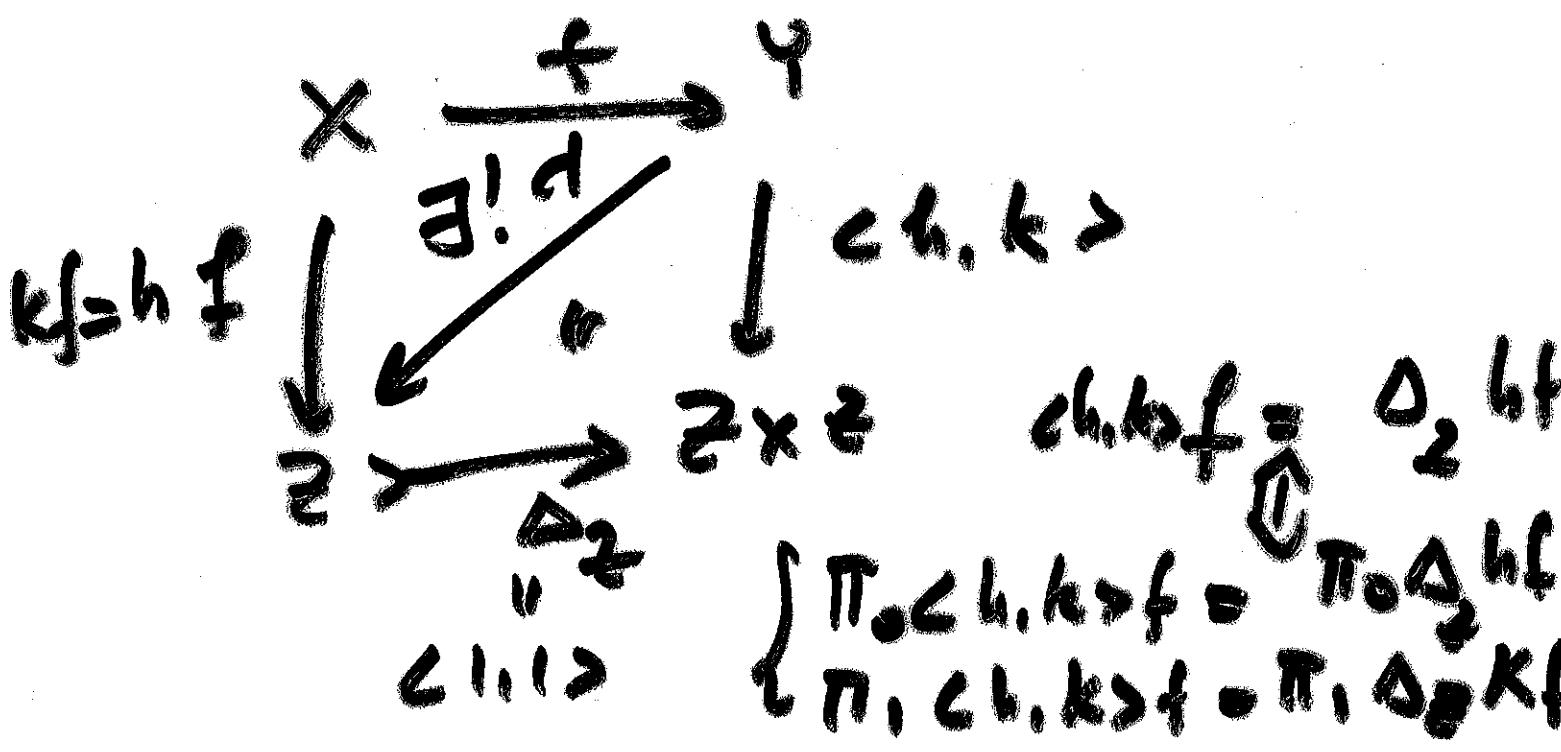 X f Y
∃! d
kf=hf <h,k>
"
Z Z×Z
<h,k>f = Δ_Z hf
Δ_Z
"
<1,1>
⇕
π₀<h,k>f = π₀Δ_Z hf
π₁<h,k>f = π₁Δ_Z kf